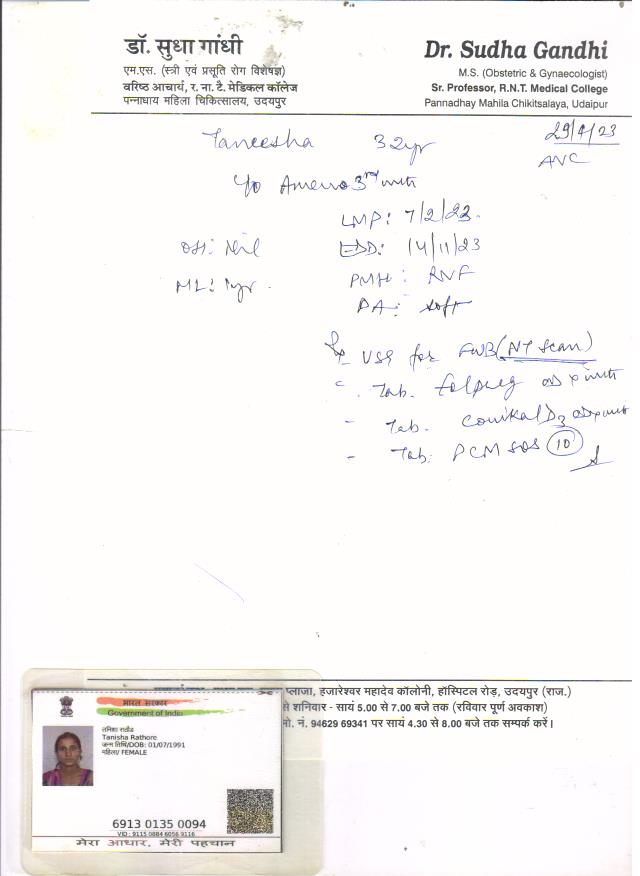 डॉ. सुधा गांधी
एम.एस. (स्त्री एवं प्रसूति रोग विशेषज्ञ)
वरिष्ठ आचार्य, र. ना. टै. मेडिकल कॉलेज
पन्नाधाय महिला चिकित्सालय, उदयपुर
Dr. Sudha Gandhi
M.S. (Obstetric & Gynaecologist)
Sr. Professor, R.N.T. Medical College
Pannadhay Mahila Chikitsalaya, Udaipur
29/4/23
Taneesha 32yr
ANC
Y/o Ameno 3rd mth
LMP: 7/2/23.
OH: Nil EDD: 14/11/23
ML: 1yr. PMH: RNF
PA: soft
USG for FWB (NT Scan)
Tab. Folpreg OD x mth
- Tab. D3 OD x mth
- Tab. PCM SOS 10
प्लाजा, हजारेश्वर महादेव कॉलोनी, हॉस्पिटल रोड़, उदयपुर (राज.)
से शनिवार - सायं 5.00 से 7.00 बजे तक (रविवार पूर्ण अवकाश)
मो. नं. 94629 69341 पर सायं 4.30 से 8.00 बजे तक सम्पर्क करें।
भारत सरकार
Government of India
तनिशा राठौड
Tanisha Rathore
जन्म तिथि/DOB: 01/07/1991
महिला/ FEMALE
6913 0135 0094
VID : 9115 0884 6056 9116
मेरा आधार, मेरी पहचान